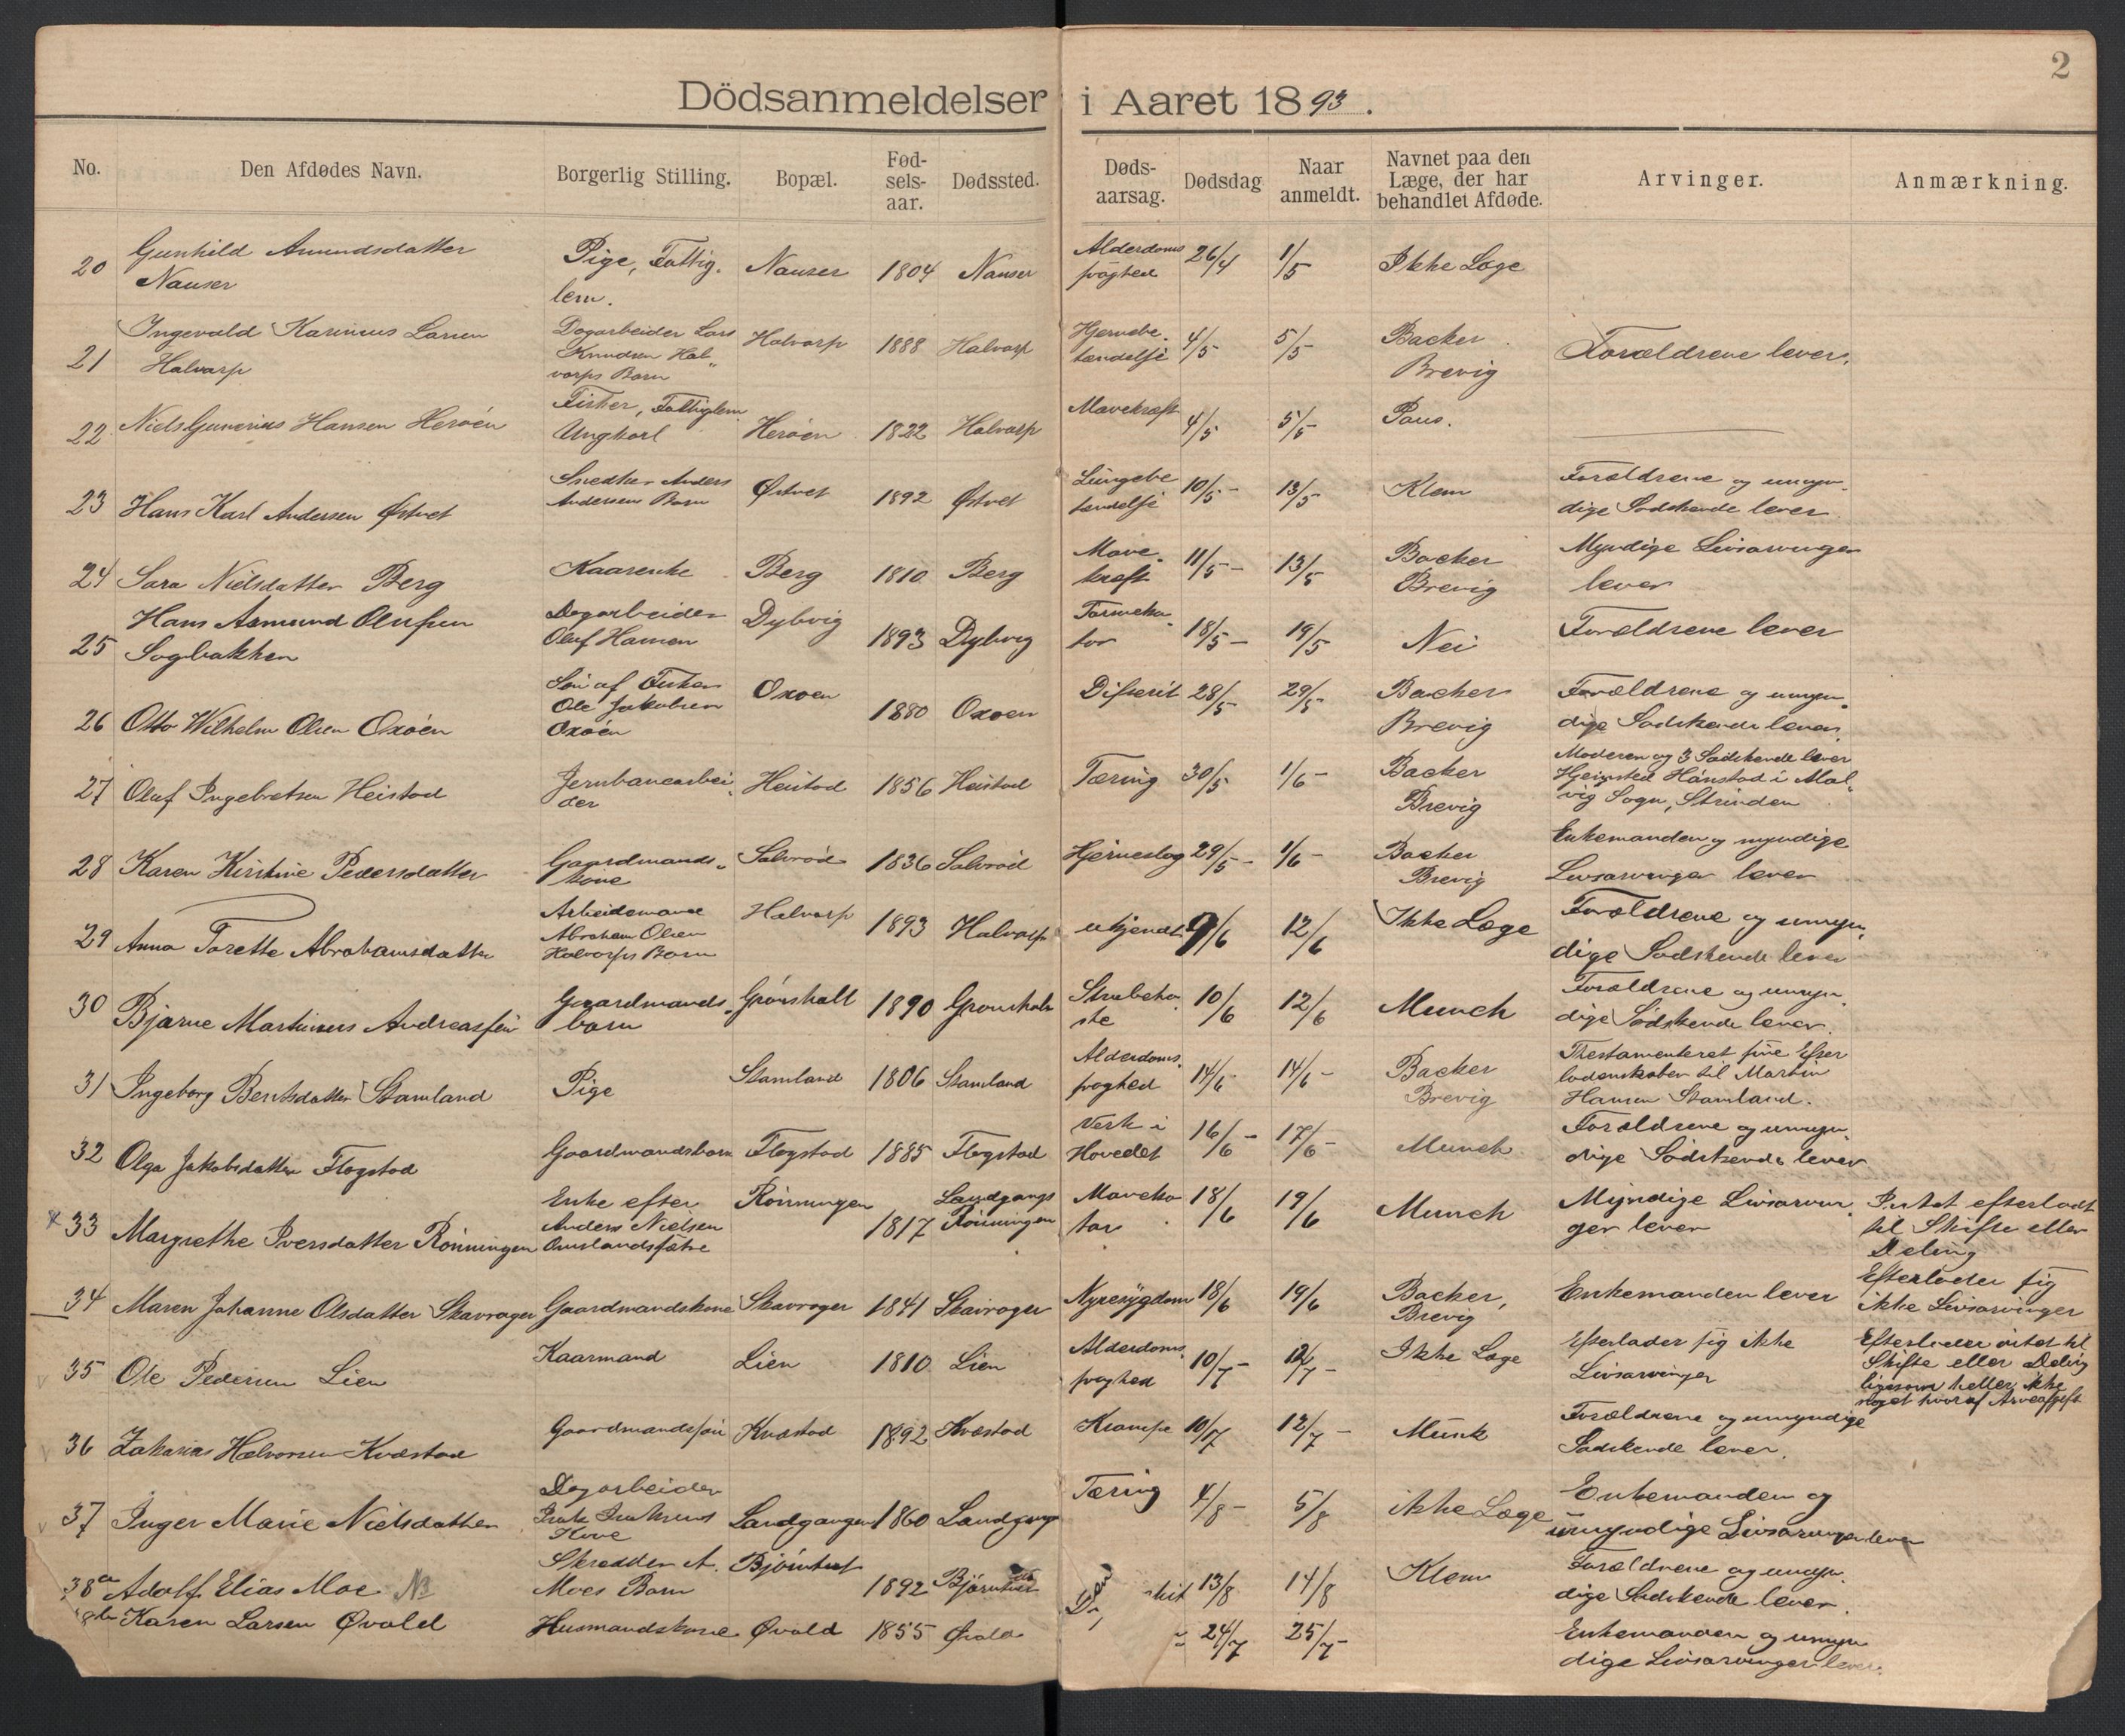 2
Dödsanmeldelser i Aaret 1893.
No. Den Afdødes Navn. Borgerlig Stilling. Bopæl. Fødselsaar. Dødssted. Dødsaarsag. Dødsdag Naar anmeldt. Navnet paa den Læge, der har behandlet Afdøde. Arvinger. Anmærkning.
20 Gunhild Amundsdatter Nauser Pige, Fattiglem. Nauser 1804 Nauser Alderdoms 26/4 1/5 Ikke Læge
21 Ingevald Larsen Halvarp Dagarbeider Lars Knudsen Halvorps Barn Halvarp 1888 Halvarp Hjernebetændelse 4/5 5/5 Backer Brevig Forældrene lever.
22 Niels Gunerius Hansen Herøen Fisker, Fattiglem Ungkarl Herøen 1822 Halvarp Mavekræft 4/5 5/5 Paus.
23 Hans Karl Andersen Østvet Snedker Anders Andersens Barn Østvet 1892 Østvet Lungebetændelse 10/5 - 13/5 Klem Forældrene og umyndige Södskende lever
24 Sara Nielsdatter Berg Kaarenke Berg 1810 Berg Mavekræft 11/5 - 13/5 Backer Brevig Myndige Livsarvinger lever
25 Hans Asmund Olufsen Sagbakken Dagarbeider Oluf Hansen Dybvig 1893 Dybvig 18/5 - 19/5 Nei Forældrene lever
26 Otto Wilhelm Olsen Oxöen Sön af Fisker Ole Jakobsen Oxöen Oxoen 1880 Oxoen Difterit 28/5 29/5 Backer Brevig Forældrene og umyndige Södskende lever.
27 Oluf Ingebretsen Heistad Jernbanearbeider Heistad 1856 Heistad Tæring 30/5 1/6 - Backer Brevig Moderen og 3 Södskende lever Hjemsted Hanstad i Malvig Sogn, Strinden
28 Karen Kirstine Pedersdatter Gaardmandskone Salvröd 1836 Salvröd Hjerneslag 29/5 - 1/6 - Backer Brevig Enkemanden og myndige Livsarvinger lever
29 Anna Torette Abrahamsdatter Arbeidsmand Abraham Olsen Halvorps Barn Halvarp 1893 Halvarp ukjendt 9/6 12/6 Ikke Læge Forældrene og umyndige Södskende lever
30 Bjarne Martinius Andreassen Gaardmandsbarn Grönshalt 1890 Strubehoste 10/6 12/6 Munch Forældrene og umyndige Södskende lever.
31 Ingeborg Bentsdatter Stamland Pige Stamland 1806 Stamland Alderdoms 14/6 14/6 - Backer Brevig Thestamenteret sine Efterladenskaber til Martin Hansen Stamland.
32 Olga Jakobsdatter Flogstad Gaardmandsbarn Flogstad 1885 Flogstad Verk i Hovedet 16/6 - 17/6 - Munch Forældrene og umyndige Södskende lever
x 33 Margrethe Iversdatter Rönningen Enke efter Anders Nielsen Rönningen 1817 Landgangs Rönningen Mavekatar 18/6 19/6 Munch Myndige Livsarvinger lever Intet efterladt til Skifte eller Deling
34 Maren Johanne Olsdatter Skavrager Gaardmandskone Skavrager 1841 Skavrager Nyresygdom 18/6 19/6 Backer, Brevig Enkemanden lever Efterlader sig ikke Livsarvinger
v 35 Ole Pedersen Lien Kaarmand Lien 1810 Lien Alderdoms 10/7 - 12/7 - Ikke Læge Efterlader sig ikke Livsarvinger Efterlader intet til Skifte eller Deling ligesom heller ikke noget hvoraf Arveafgift
v 36 Zakarias Halvorsen Kvæstad Gaardmandssön Kvæstad 1892 Kvæstad Krampe 10/7 12/7 - Munk Forældrene og umyndige Södskende lever.
v 37 Inger Marie Nielsdatter Dagarbeider Kone Landgangen 1860 Landgang Tæring 4/8 - 5/8 ikke Læge Enkemanden og umyndige Livsarvinger lever
38a Adolf Elias Moe No Skrædder A. Moes Barn Björntvet 1892 Björntvet 13/8 14/8 Klem Forældrene og umyndige Södskende lever.
38b Karen Larsen Øvald Husmandskone Øvald 1855 Øvald 24/7 25/7 - Enkemanden og umyndige Livsarvinger lever.